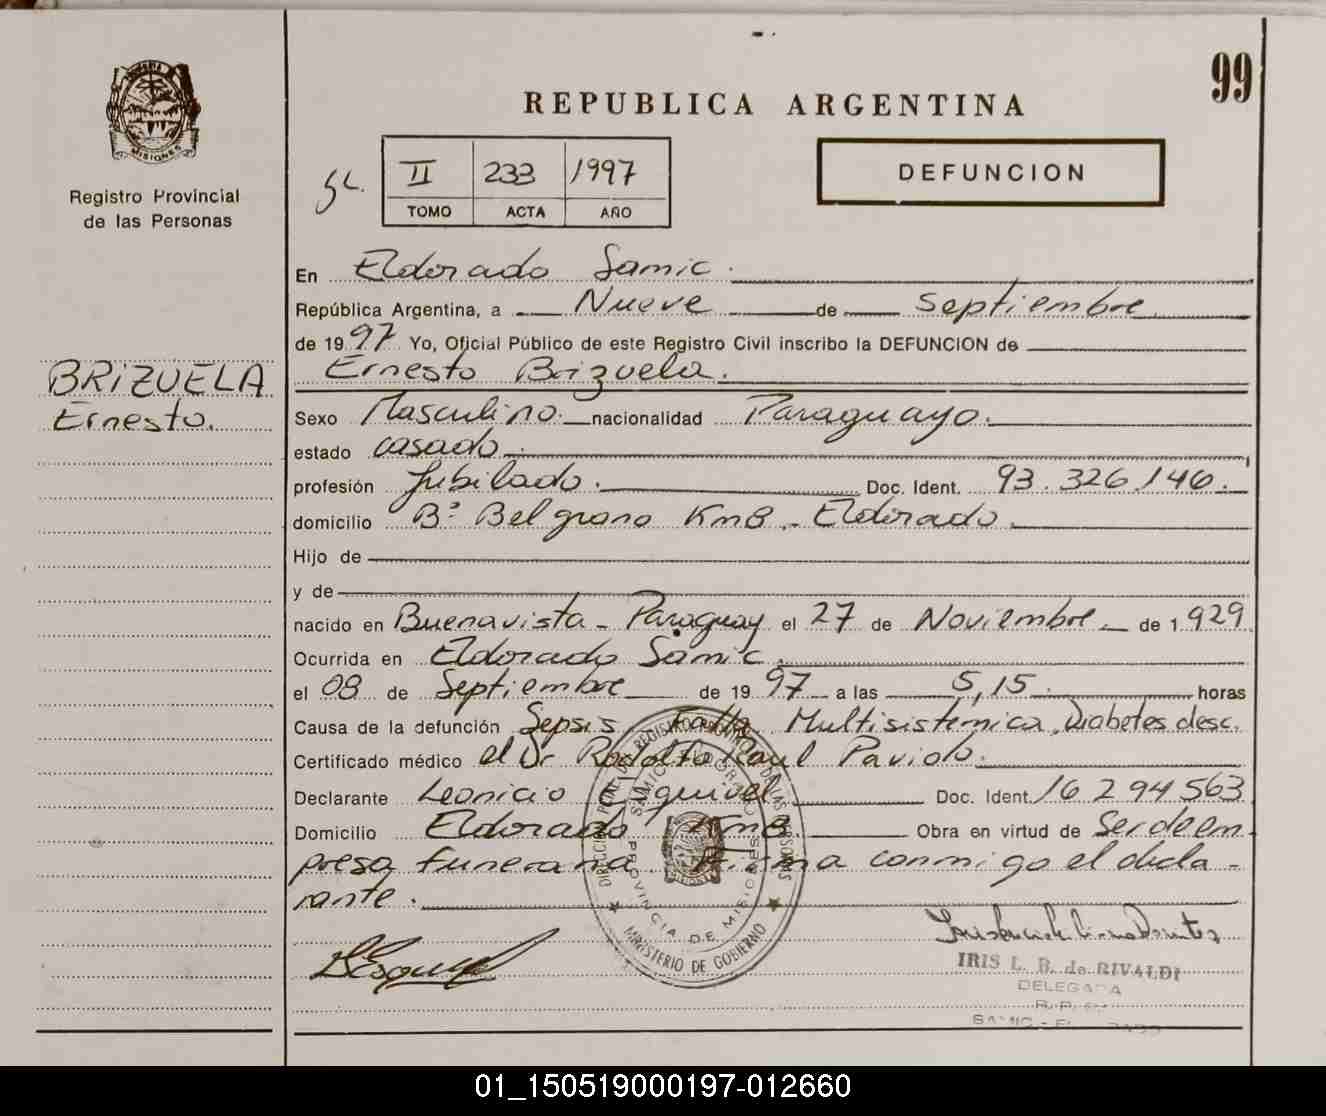 99
REPUBLICA ARGENTINA
MISIONES
Registro Provincial
de las Personas
II 233 1997
TOMO ACTA AÑO
DEFUNCION
BRIZUELA
Ernesto.
En Eldorado Samic.
República Argentina, a Nueve de Septiembre
de 1997 Yo, Oficial Público de este Registro Civil inscribo la DEFUNCION de
Ernesto Brizuela.
Sexo Masculino. nacionalidad Paraguayo.
estado casado.
profesión Jubilado. Doc. Ident. 93.326.146.
domicilio Bº Belgrano Km8. Eldorado.
Hijo de
y de
nacido en Buenavista - Paraguay el 27 de Noviembre de 1.929
Ocurrida en Eldorado Samic.
el 08 de Septiembre de 1997 a las 5,15. horas
Causa de la defunción Sepsis Falla Multisistemica, Diabetes desc.
Certificado médico el Dr Rodolfo Raul
Declarante Leonicio Esquivel Doc. Ident. 16294563
Domicilio Eldorado Km8 Obra en virtud de Ser de em
presa funeraria. Firma conmigo el decla-
rante.
MINISTERIO DE GOBIERNO
PROVINCIA DE MISIONES
IRIS L. B. de RIVALDI
DELEGADA
01_150519000197-012660